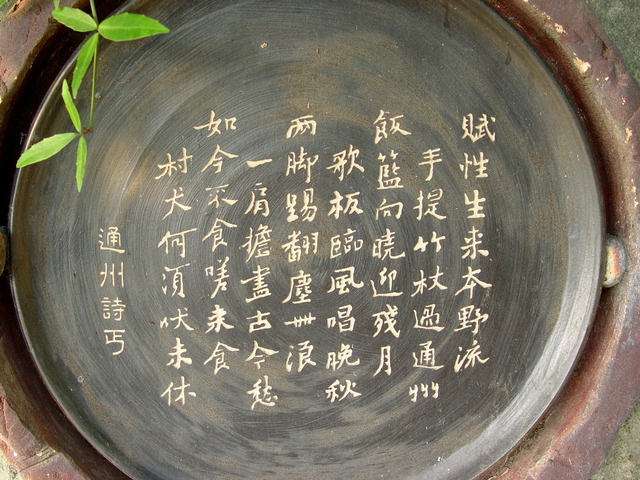 賦性生来本野流
手提竹杖過通州
飯籃向曉迎殘月
歌板臨風唱晚秋
兩脚踢翻塵世浪
一肩擔盡古今愁
如今不食嗟来食
村犬何須吠未休
通州詩丐